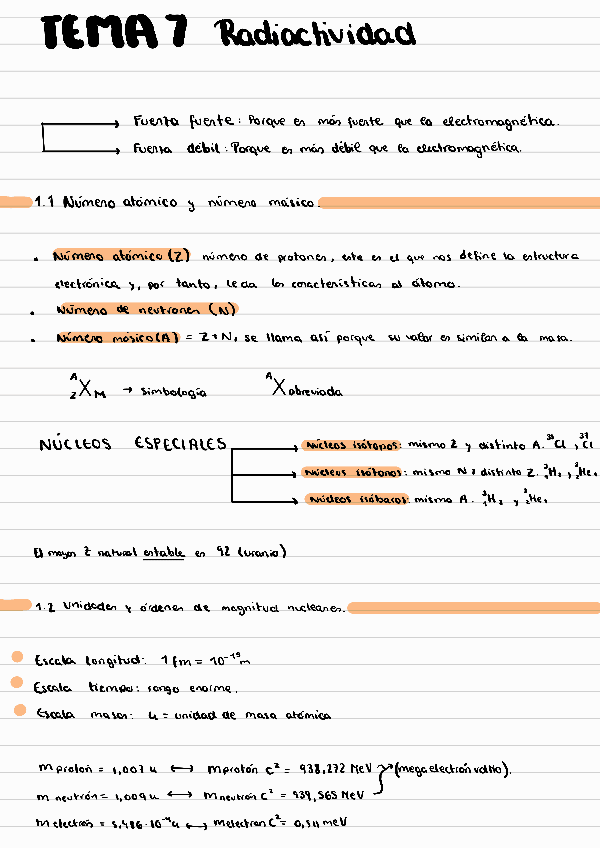 TEMA 7 Radiactividad
Fuerza fuerte: Porque es más fuerte que la electromagnética.
Fuerza débil: Porque es más débil que la electromagnética.
1.1 Número atómico y número másico.
• Número atómico (Z) número de protones, este es el que nos define la estructura
electrónica y, por tanto, le da las características al átomo.
• Número de neutrones (N)
• Número másico (A) = Z+N, se llama así porque su valor es similar a la masa.
ᴬ_Z X_M → simbología ᴬX abreviada
NÚCLEOS ESPECIALES
Núcleos isótopos: mismo Z y distinto A. ³⁵Cl, ³⁷Cl
Núcleos isótonos: mismo N y distinto Z.
Núcleos isóbaros: mismo A.
El mayor Z natural estable es 92 (uranio)
1.2 Unidades y órdenes de magnitud nucleares.
Escala longitud: 1 fm = 10⁻¹⁵ m
Escala tiempo: rango enorme.
Escala masas: u = unidad de masa atómica
m protón = 1,007 u ↔ m protón c² = 938,272 MeV → (mega electrón voltio).
m neutrón = 1,009 u ↔ m neutrón c² = 939,565 MeV
m electrón = 5,486·10⁻⁴ u ↔ m electrón c² = 0,511 meV